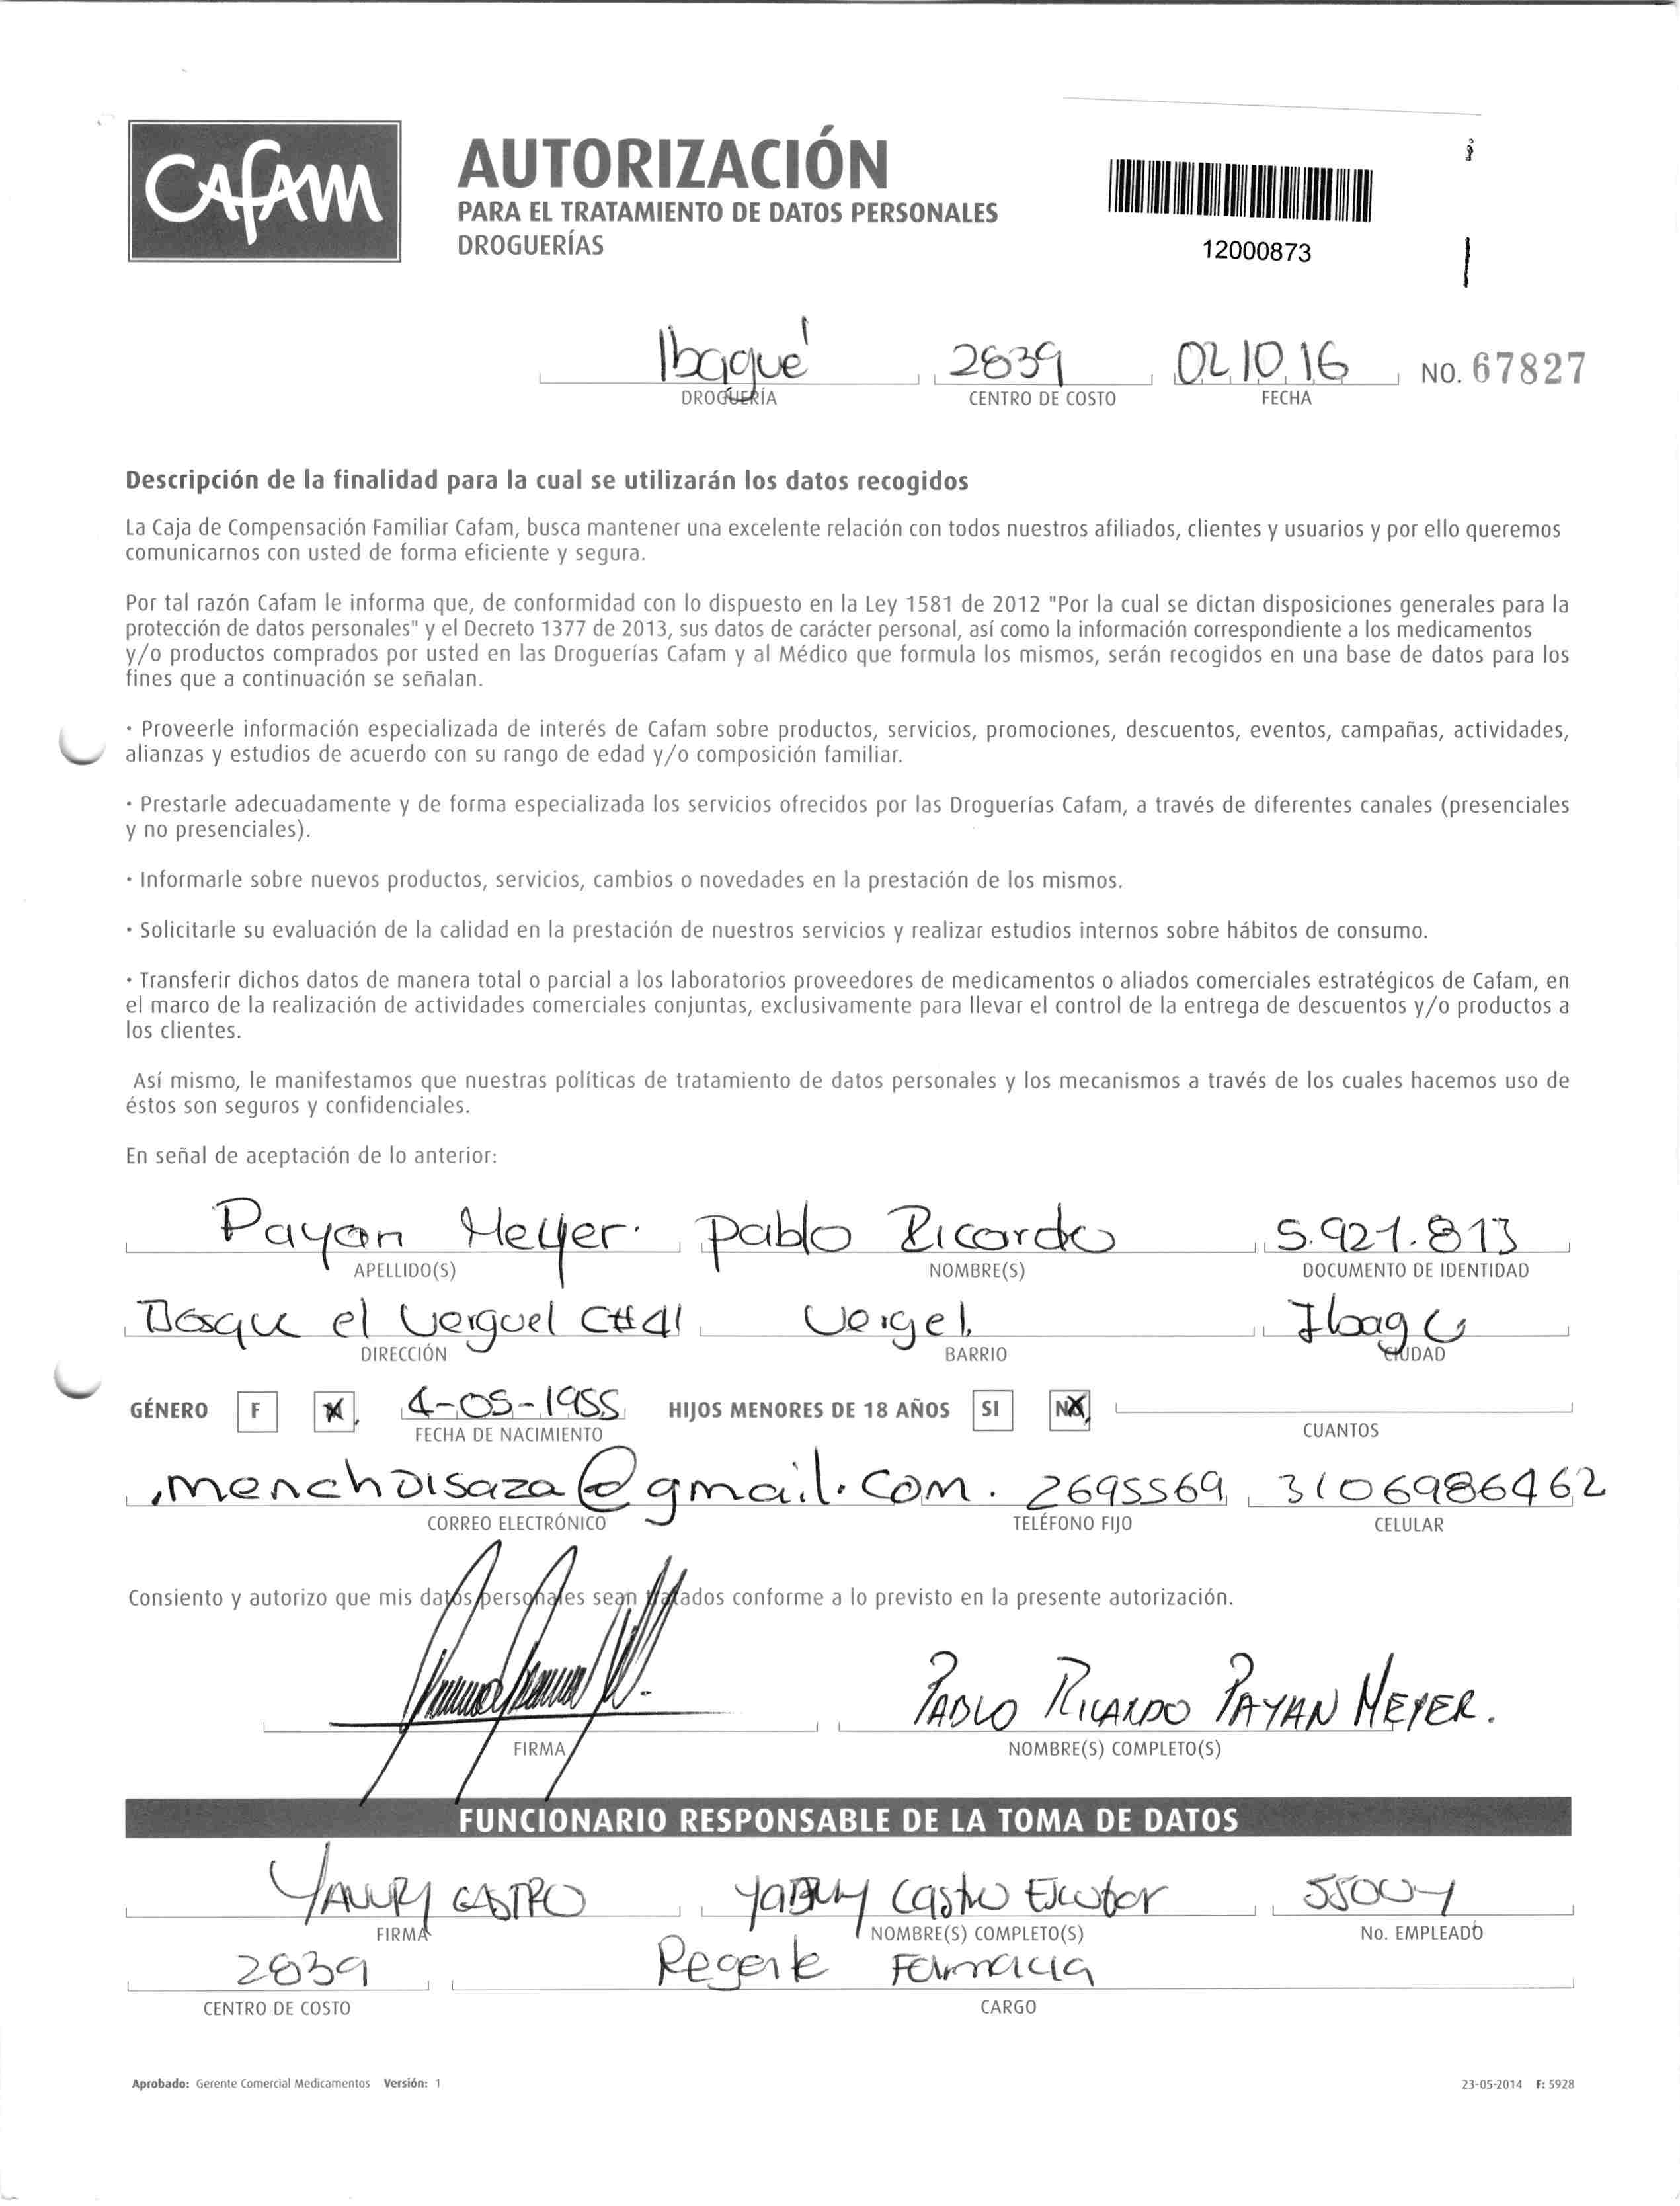 CAFAM
AUTORIZACIÓN
PARA EL TRATAMIENTO DE DATOS PERSONALES
DROGUERÍAS
12000873
Ibagué 2839 02 10 16 NO. 67827
DROGUERÍA CENTRO DE COSTO FECHA
Descripción de la finalidad para la cual se utilizarán los datos recogidos
La Caja de Compensación Familiar Cafam, busca mantener una excelente relación con todos nuestros afiliados, clientes y usuarios y por ello queremos
comunicarnos con usted de forma eficiente y segura.
Por tal razón Cafam le informa que, de conformidad con lo dispuesto en la Ley 1581 de 2012 "Por la cual se dictan disposiciones generales para la
protección de datos personales" y el Decreto 1377 de 2013, sus datos de carácter personal, así como la información correspondiente a los medicamentos
y/o productos comprados por usted en las Droguerías Cafam y al Médico que formula los mismos, serán recogidos en una base de datos para los
fines que a continuación se señalan.
· Proveerle información especializada de interés de Cafam sobre productos, servicios, promociones, descuentos, eventos, campañas, actividades,
alianzas y estudios de acuerdo con su rango de edad y/o composición familiar.
· Prestarle adecuadamente y de forma especializada los servicios ofrecidos por las Droguerías Cafam, a través de diferentes canales (presenciales
y no presenciales).
· Informarle sobre nuevos productos, servicios, cambios o novedades en la prestación de los mismos.
· Solicitarle su evaluación de la calidad en la prestación de nuestros servicios y realizar estudios internos sobre hábitos de consumo.
· Transferir dichos datos de manera total o parcial a los laboratorios proveedores de medicamentos o aliados comerciales estratégicos de Cafam, en
el marco de la realización de actividades comerciales conjuntas, exclusivamente para llevar el control de la entrega de descuentos y/o productos a
los clientes.
Así mismo, le manifestamos que nuestras políticas de tratamiento de datos personales y los mecanismos a través de los cuales hacemos uso de
éstos son seguros y confidenciales.
En señal de aceptación de lo anterior:
Payan Meyer. Pablo Ricardo 5.921.813
APELLIDO(S) NOMBRE(S) DOCUMENTO DE IDENTIDAD
Bosque el Verguel C#41 Vergel. Ibagu
DIRECCIÓN BARRIO CIUDAD
GÉNERO F M 4-05-1955 HIJOS MENORES DE 18 AÑOS SI NO
FECHA DE NACIMIENTO CUANTOS
menchoisaza@gmail.com. 2695569 3106986462
CORREO ELECTRÓNICO TELÉFONO FIJO CELULAR
Consiento y autorizo que mis datos personales sean tratados conforme a lo previsto en la presente autorización.
PABLO RICARDO PAYAN MEYER.
FIRMA NOMBRE(S) COMPLETO(S)
FUNCIONARIO RESPONSABLE DE LA TOMA DE DATOS
CASTRO Castro Escobar 55004
FIRMA NOMBRE(S) COMPLETO(S) No. EMPLEADO
2839 Regente Farmacia
CENTRO DE COSTO CARGO
Aprobado: Gerente Comercial Medicamentos Versión: 1 23-05-2014 F: 5928